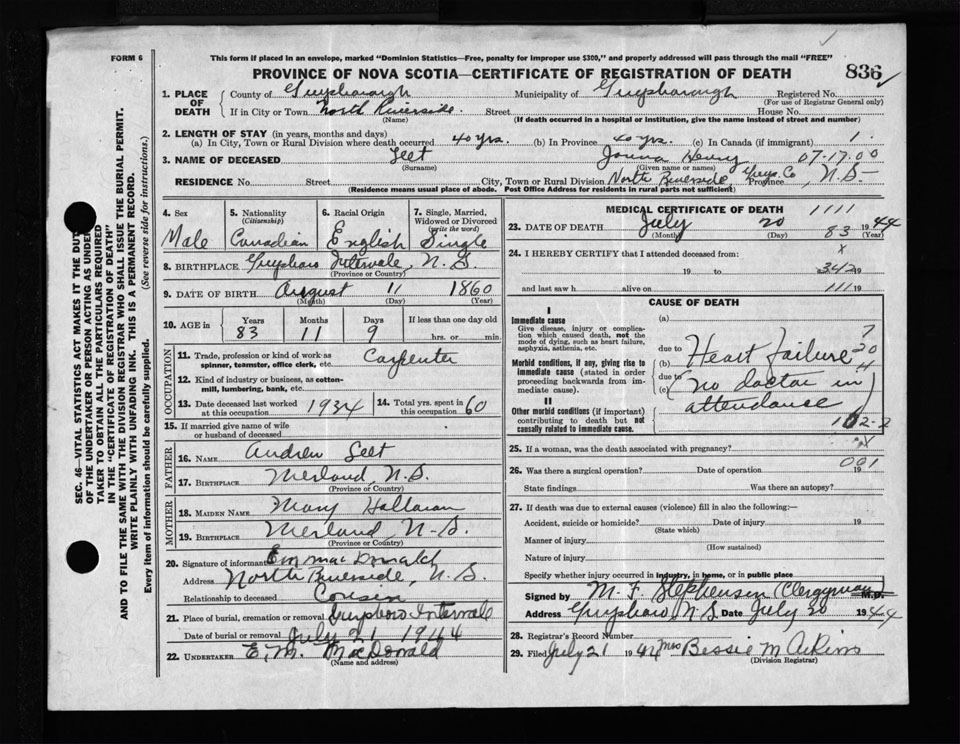 FORM 6
This form if placed in an envelope, marked "Dominion Statistics—Free, penalty for improper use $300," and properly addressed will pass through the mail "FREE"
PROVINCE OF NOVA SCOTIA—CERTIFICATE OF REGISTRATION OF DEATH
836
SEC. 46—VITAL STATISTICS ACT MAKES IT THE DUTY
OF THE UNDERTAKER OR PERSON ACTING AS UNDER-
TAKER TO OBTAIN ALL THE PARTICULARS REQUIRED
IN THE "CERTIFICATE OF REGISTRATION OF DEATH"
AND TO FILE THE SAME WITH THE DIVISION REGISTRAR WHO SHALL ISSUE THE BURIAL PERMIT.
WRITE PLAINLY WITH UNFADING INK. THIS IS A PERMANENT RECORD.
Every item of information should be carefully supplied. (See reverse side for instructions.)
1. PLACE OF DEATH County of Guysborough Municipality of Guysborough Registered No.
(For use of Registrar General only)
If in City or Town North Riverside Street House No.
(Name) (If death occurred in a hospital or institution, give the name instead of street and number)
2. LENGTH OF STAY (in years, months and days)
(a) In City, Town or Rural Division where death occurred 40 yrs. (b) In Province 40 yrs. (c) In Canada (if immigrant) 1
3. NAME OF DECEASED Henry 07-17.00
(Surname) (Given name or names)
RESIDENCE No. Street City, Town or Rural Division North Riverside, Guys. Co Province N.S.
(Residence means usual place of abode. Post Office Address for residents in rural parts not sufficient)
4. Sex
Male
5. Nationality
(Citizenship)
Canadian
6. Racial Origin
English
7. Single, Married, Widowed or Divorced
(write the word)
Single
8. BIRTHPLACE Guysboro Intervale, N.S.
(Province or Country)
9. DATE OF BIRTH August 11 1860
(Month) (Day) (Year)
10. AGE in Years Months Days If less than one day old
83 11 9 hrs. or min.
OCCUPATION
11. Trade, profession or kind of work as spinner, teamster, office clerk, etc. Carpenter
12. Kind of industry or business, as cotton-mill, lumbering, bank, etc.
13. Date deceased last worked at this occupation 1934
14. Total yrs. spent in this occupation 60
15. If married give name of wife or husband of deceased
FATHER
16. NAME Andrew
17. BIRTHPLACE Merland, N.S.
(Province or Country)
MOTHER
18. MAIDEN NAME Mary Hallaran
19. BIRTHPLACE Merland N.S.
(Province or Country)
20. Signature of informant Em MacDonald
Address North Riverside, N.S.
Relationship to deceased Cousin
21. Place of burial, cremation or removal Guysboro Intervale
Date of burial or removal July 21 1944
22. UNDERTAKER E.M. MacDonald
(Name and address)
MEDICAL CERTIFICATE OF DEATH
1111
23. DATE OF DEATH July 20 1944
(Month) (Day) 83 (Year)
24. I HEREBY CERTIFY that I attended deceased from:
x
19 to 342 19
and last saw h alive on 111 19
CAUSE OF DEATH
I
Immediate cause
Give disease, injury or complication which caused death, not the mode of dying, such as heart failure, asphyxia, asthenia, etc.
Morbid conditions, if any, giving rise to immediate cause (stated in order proceeding backwards from immediate cause).
II
Other morbid conditions (if important) contributing to death but not causally related to immediate cause.
(a)
due to
(b) Heart failure
due to
(c) No doctor in
attendance
7
20
4
25. If a woman, was the death associated with pregnancy? x
26. Was there a surgical operation? Date of operation 001 19
State findings Was there an autopsy?
27. If death was due to external causes (violence) fill in also the following:—
Accident, suicide or homicide? Date of injury 19
(State which)
Manner of injury
(How sustained)
Nature of injury
Specify whether injury occurred in industry, in home, or in public place
Signed by M. F. Stephensen (Clergyman) M.D.
Address Guysboro, N.S. Date July 20 1944
28. Registrar's Record Number
29. Filed July 21 1944 Mrs Bessie M Aikins
(Division Registrar)